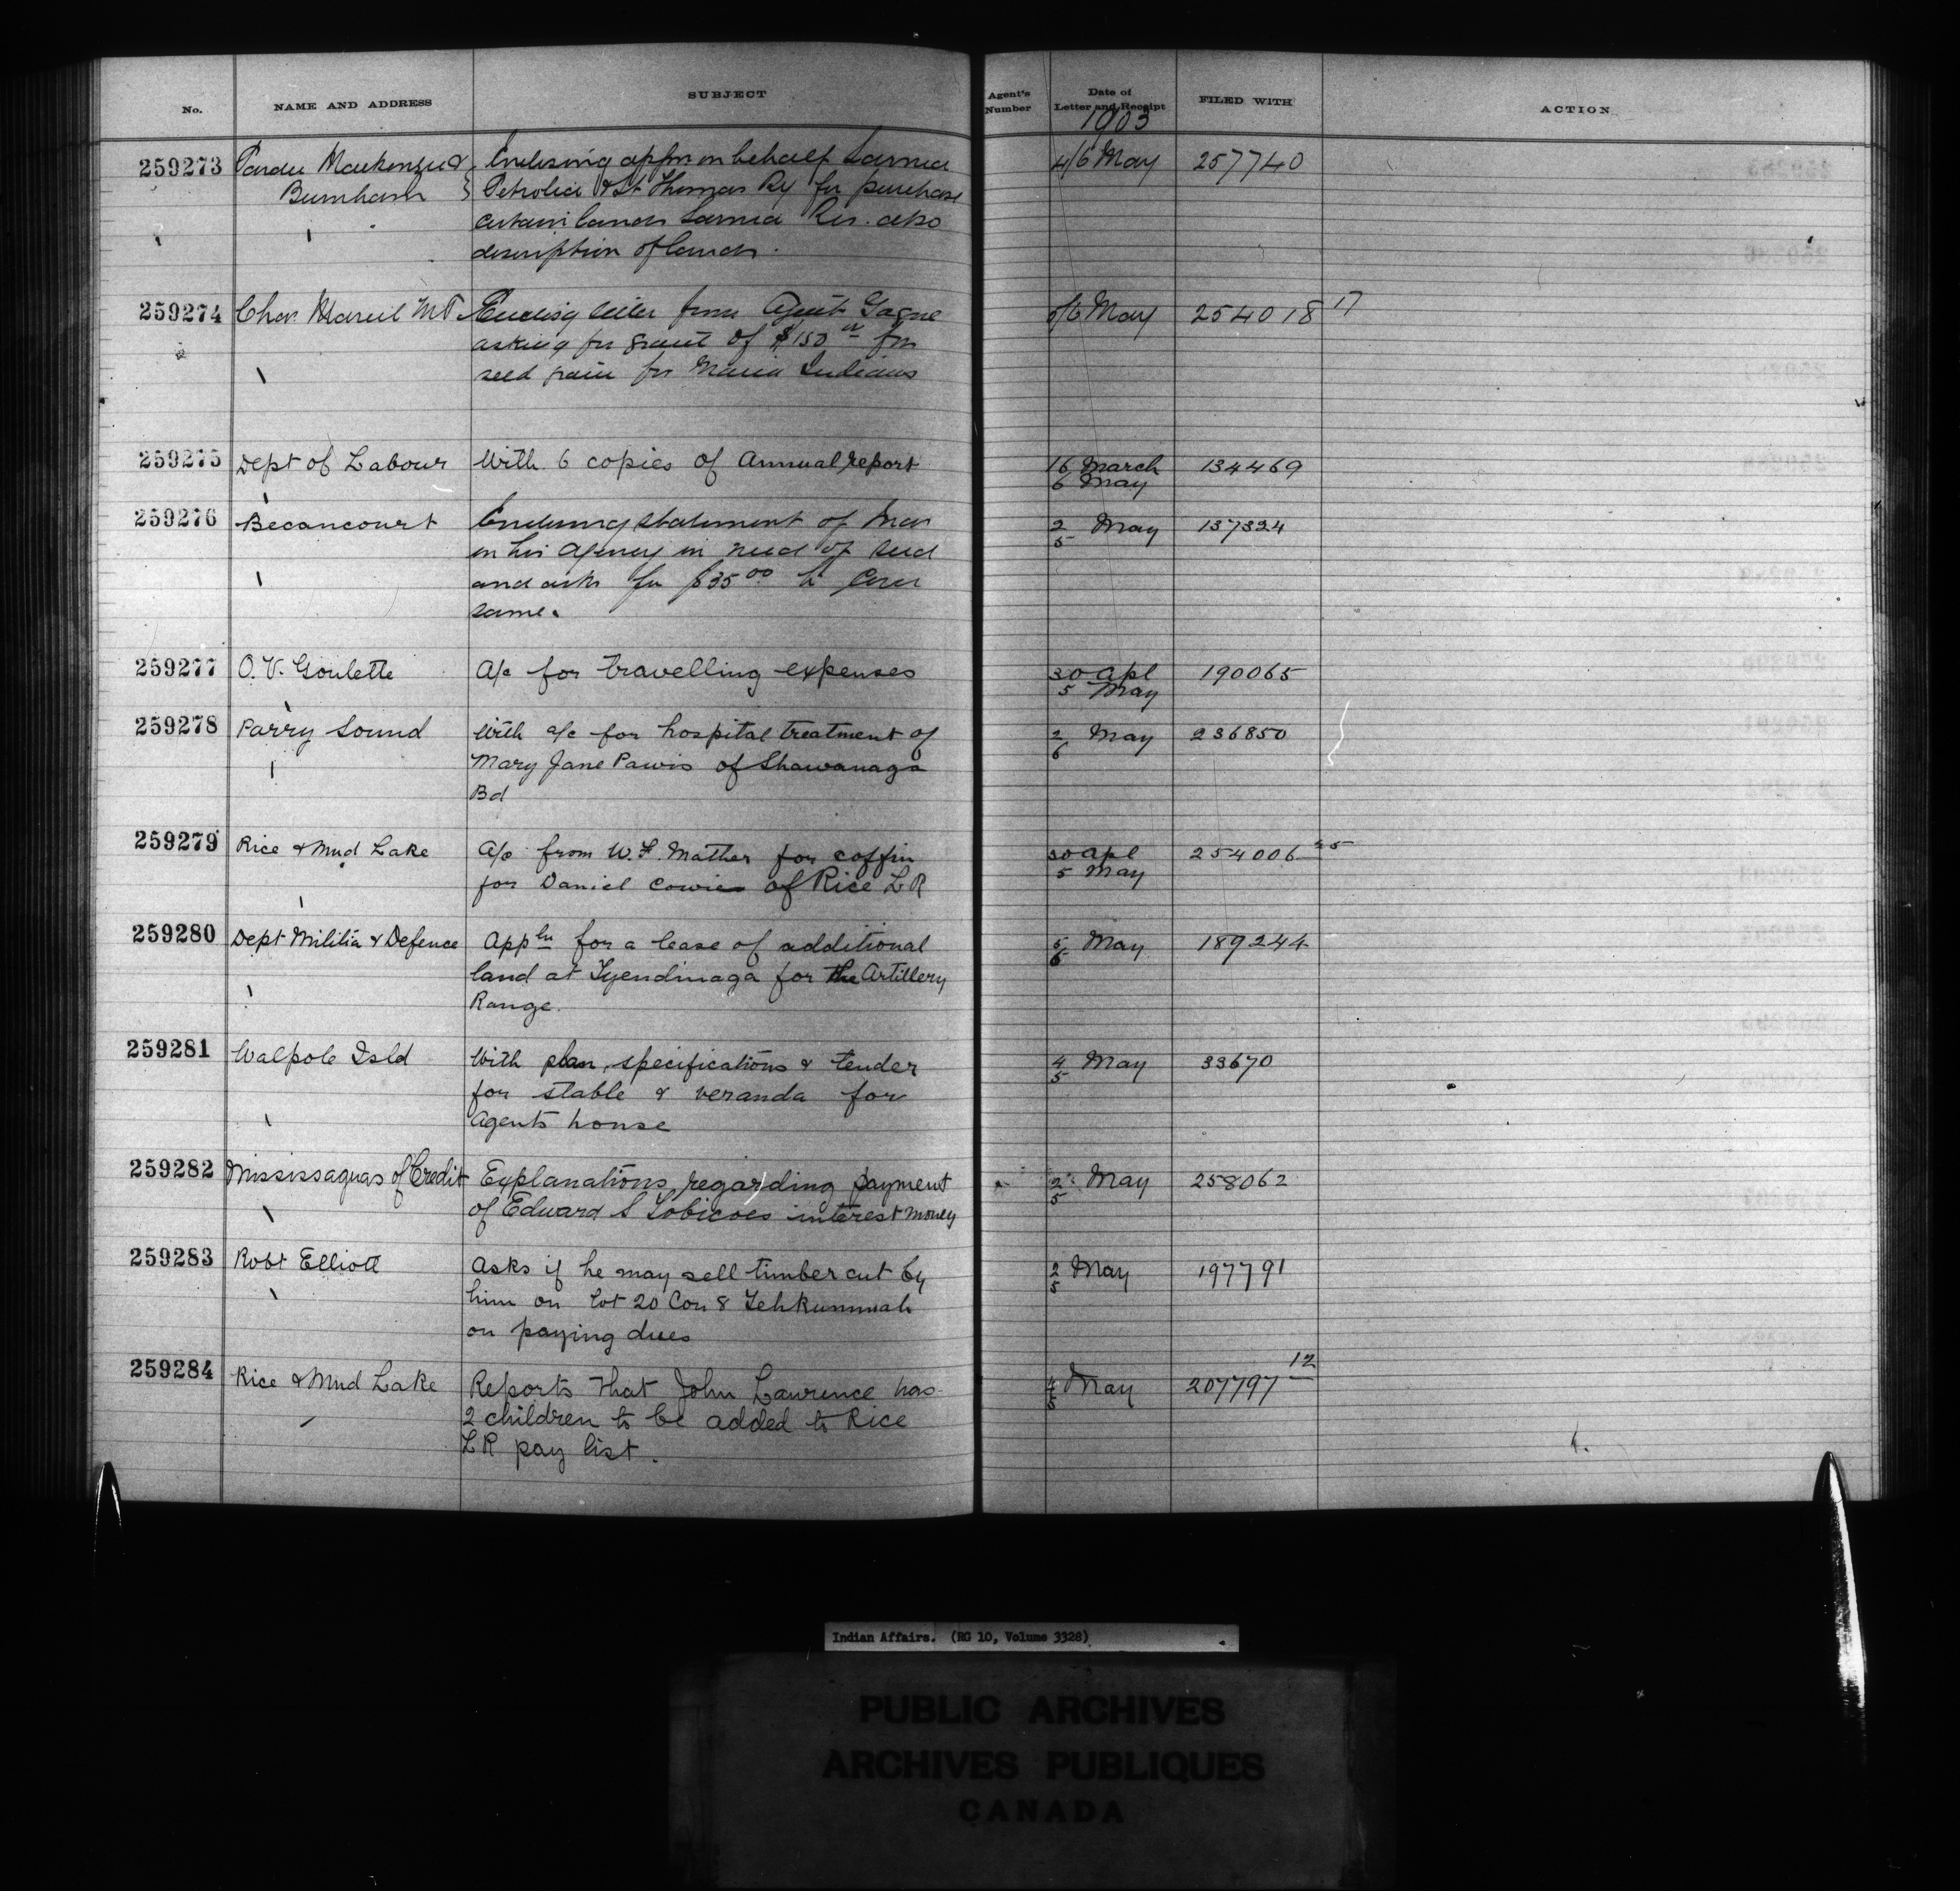 No. NAME AND ADDRESS SUBJECT Agent's Number Date of Letter and Receipt FILED WITH ACTION
1903
259273 Pardee Mackenzie & Enclosing appln on behalf Sarnia 4/6 May 257740
Burnham Petrolia & St Thomas Ry for purchase
certain lands Sarnia Res. also
description of lands.
259274 Chas Marcil MP. Encloses letter from Agent Gagne 5/6 May 254018 17
asking for grant of $150 for
seed grain for Maria Indians
259275 Dept of Labour With 6 copies of Annual report 16 March 134469
6 May
259276 Becancourt Enclosing statement of
in his agency in need of seed 2/5 May 137324
and asks for $35.00 to cover
same.
259277 O. V. Goulette A/c for travelling expenses 30 Apl 190065
5 May
259278 Parry Sound With a/c for hospital treatment of 2/6 May 236850
Mary Jane Pawis of Shawanaga
Bd
259279 Rice & Mud Lake A/c from W. F. Mather for coffin 30 Apl 254006 25
for Daniel Cowie of Rice L R 5 May
259280 Dept Militia & Defence Appln for a lease of additional 5/6 May 189244
land at Tyendinaga for the Artillery
Range.
259281 Walpole Isld With plan, specifications & tender 4/5 May 33670
for stable & veranda for
Agents house
259282 Mississaguas of Credit Explanations regarding payment 2/5 May 258062
of Edward S Tobicoes interest money
259283 Robt Elliott Asks if he may sell timber cut by 2/5 May 197791
him on lot 20 Con 8 Tehkummah
on paying dues
259284 Rice & Mud Lake Reports that John Lawrence has 4/5 May 207797 12
2 children to be added to Rice
L R pay list.
Indian Affairs. (RG 10, Volume 3328)
PUBLIC ARCHIVES
ARCHIVES PUBLIQUES
CANADA